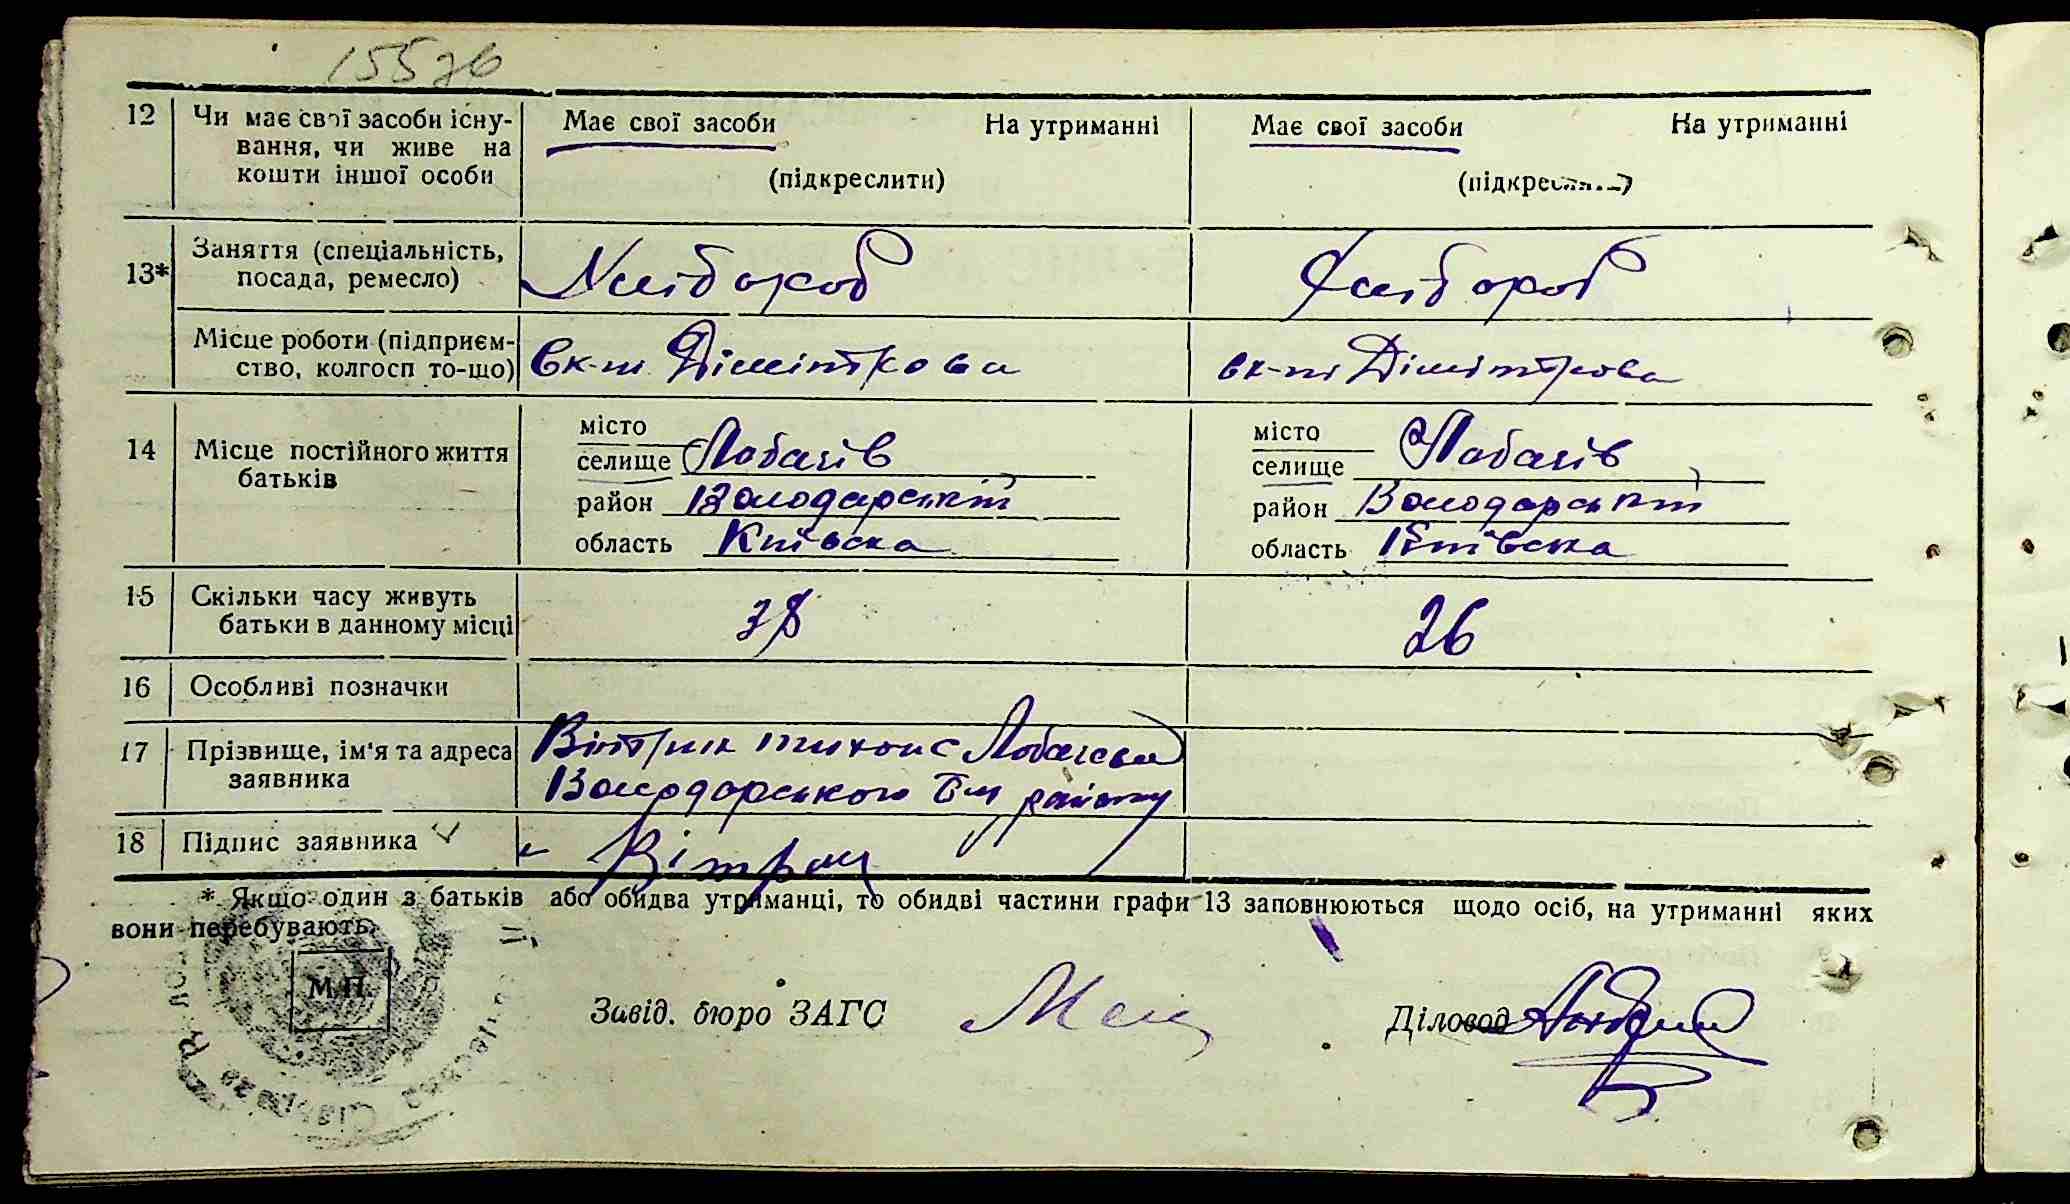 15576
12 Чи має свої засоби існу- Має свої засоби На утриманні Має свої засоби На утриманні
вання, чи живе на
кошти іншої особи (підкреслити) (підкреслити)
13* Заняття (спеціальність, Хлібороб Хлібороб
посада, ремесло)
Місце роботи (підприєм- вк-п Дімітрова вк-п Дімітрова
ство, колгосп то-що)
14 Місце постійного життя місто місто
батьків селище Лобачів селище Лобачів
район Володарський район Володарський
область Київська область Київська
15 Скільки часу живуть 38 26
батьки в данному місці
16 Особливі позначки
17 Прізвище, ім'я та адреса
заявника Володарського району
18 Підпис заявника
* Якщо один з батьків або обидва утриманці, то обидві частини графи 13 заповнюються щодо осіб, на утриманні яких
вони перебувають.
М.П.
Завід. бюро ЗАГС Діловод